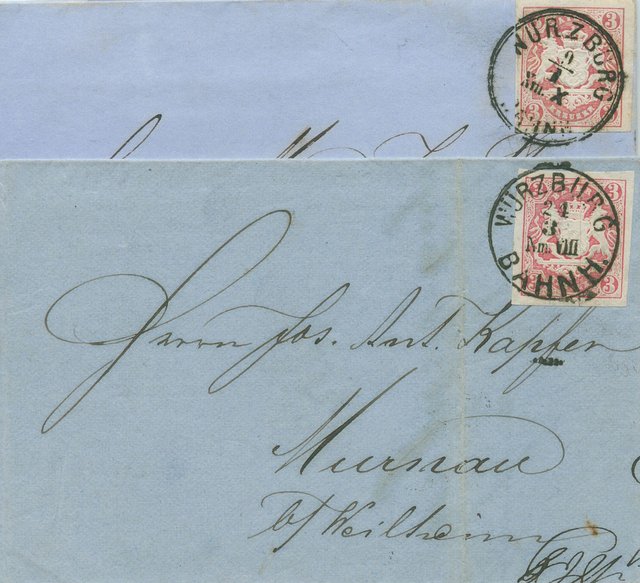 3 3
WÜRZBURG
9
1
Nm. X
BAHNH.
3 KREUZER 3
WÜRZBURG
24
3
Nm. VIII
BAHNH.
3 3
3
Herrn Jos. Ant. Kapfer
Murnau
b/ Weilheim